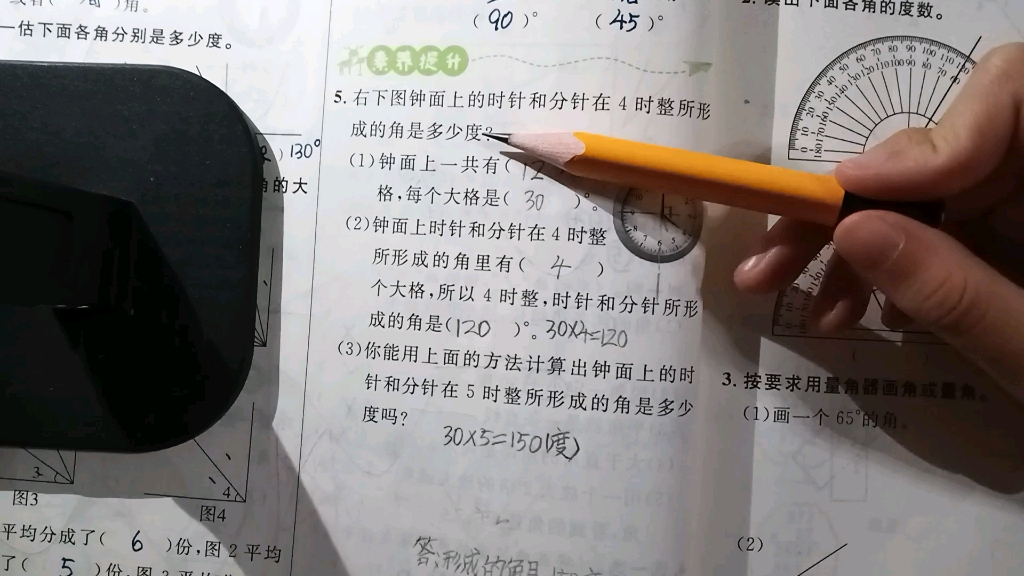 一估下面各角分别是多少度。
)130°
角的大
图3
图4
平均分成了( 6 )份,图2平均
了( 5 )份,图3平均
(90)° (45)°
素养提升
5.右下图钟面上的时针和分针在4时整所形
成的角是多少度?
(1)钟面上一共有(12
格,每个大格是( 30 )°。
(2)钟面上时针和分针在4时整
所形成的角里有( 4 )
个大格,所以4时整,时针和分针所形
成的角是(120 )°。30×4=120
(3)你能用上面的方法计算出钟面上的时
针和分针在5时整所形成的角是多少
度吗?
30×5=150(度)
答:形成的角是
下面各角的度数。
3.按要求用量角器画角或量角。
(1)画一个65°的角。
(2)